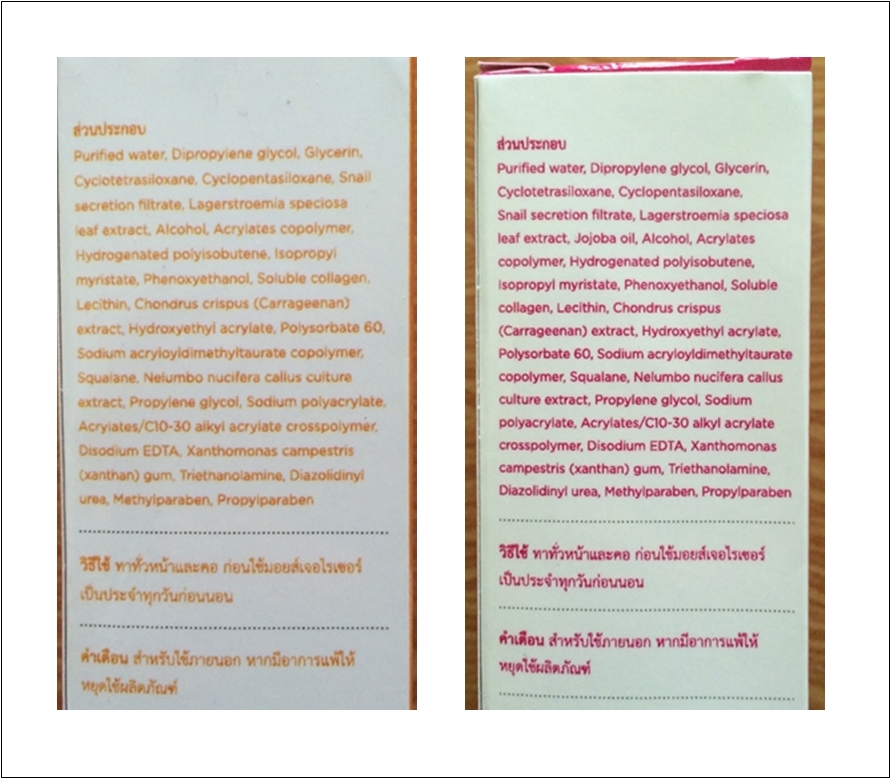 ส่วนประกอบ
Purified water, Dipropylene glycol, Glycerin,
Cyclotetrasiloxane, Cyclopentasiloxane, Snail
secretion filtrate, Lagerstroemia speciosa
leaf extract, Alcohol, Acrylates copolymer,
Hydrogenated polyisobutene, Isopropyl
myristate, Phenoxyethanol, Soluble collagen,
Lecithin, Chondrus crispus (Carrageenan)
extract, Hydroxyethyl acrylate, Polysorbate 60,
Sodium acryloyldimethyltaurate copolymer,
Squalane, Nelumbo nucifera callus culture
extract, Propylene glycol, Sodium polyacrylate,
Acrylates/C10-30 alkyl acrylate crosspolymer,
Disodium EDTA, Xanthomonas campestris
(xanthan) gum, Triethanolamine, Diazolidinyl
urea, Methylparaben, Propylparaben
วิธีใช้ ทาทั่วหน้าและคอ ก่อนใช้มอยส์เจอไรเซอร์
เป็นประจำทุกวันก่อนนอน
คำเตือน สำหรับใช้ภายนอก หากมีอาการแพ้ให้
หยุดใช้ผลิตภัณฑ์
ส่วนประกอบ
Purified water, Dipropylene glycol, Glycerin,
Cyclotetrasiloxane, Cyclopentasiloxane,
Snail secretion filtrate, Lagerstroemia speciosa
leaf extract, Jojoba oil, Alcohol, Acrylates
copolymer, Hydrogenated polyisobutene,
Isopropyl myristate, Phenoxyethanol, Soluble
collagen, Lecithin, Chondrus crispus
(Carrageenan) extract, Hydroxyethyl acrylate,
Polysorbate 60, Sodium acryloyldimethyltaurate
copolymer, Squalane, Nelumbo nucifera callus
culture extract, Propylene glycol, Sodium
polyacrylate, Acrylates/C10-30 alkyl acrylate
crosspolymer, Disodium EDTA, Xanthomonas
campestris (xanthan) gum, Triethanolamine,
Diazolidinyl urea, Methylparaben, Propylparaben
วิธีใช้ ทาทั่วหน้าและคอ ก่อนใช้มอยส์เจอไรเซอร์
เป็นประจำทุกวันก่อนนอน
คำเตือน สำหรับใช้ภายนอก หากมีอาการแพ้ให้
หยุดใช้ผลิตภัณฑ์